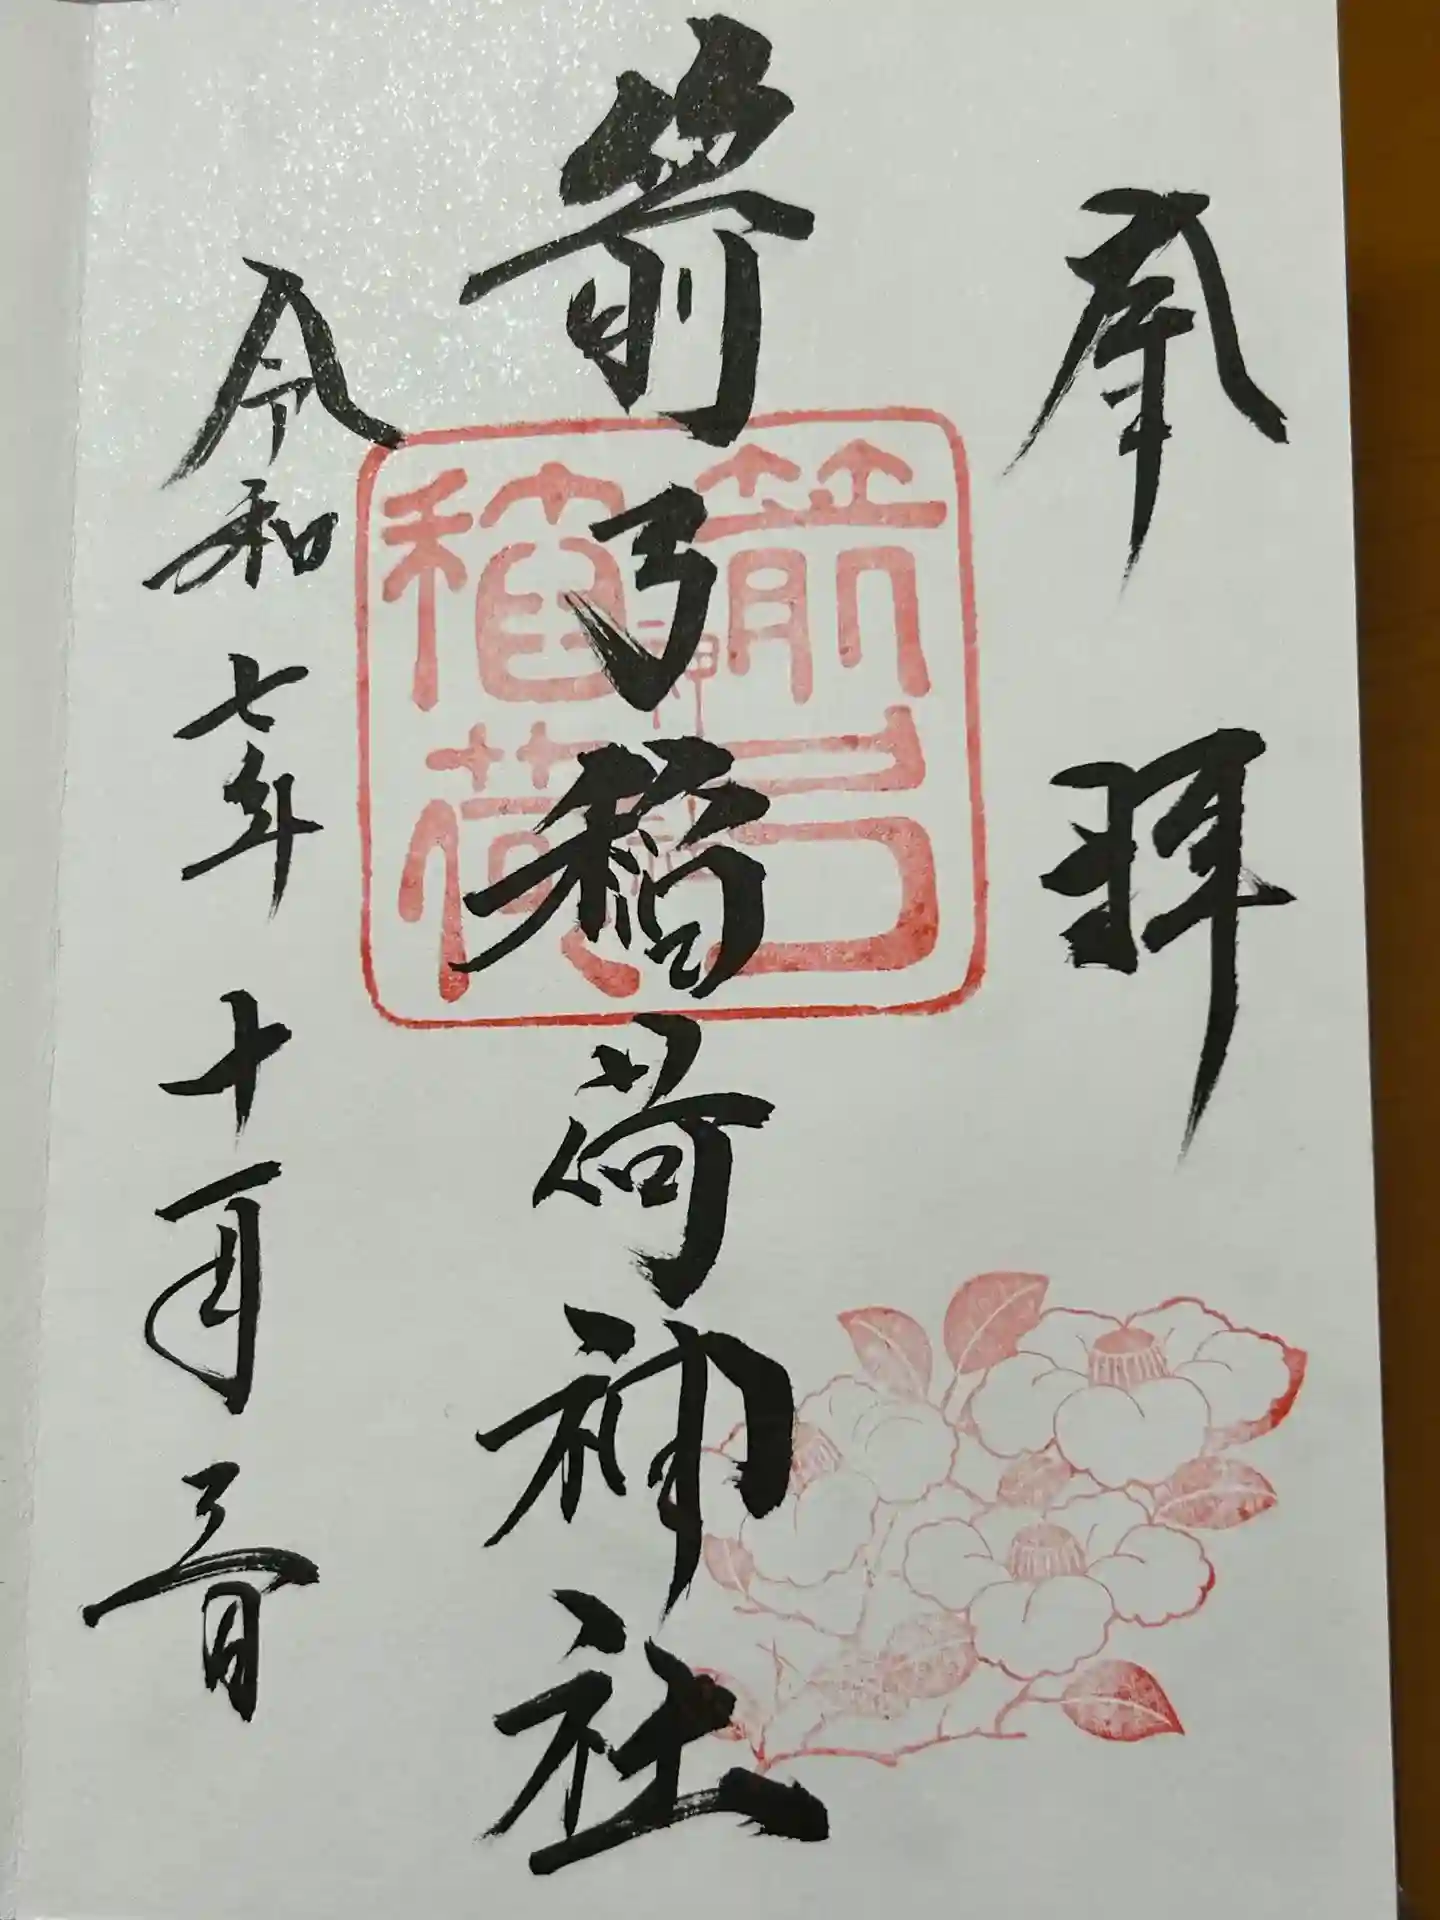 奉拝
箭弓稲荷神社
令和七年十一月三日
箭弓
稲荷